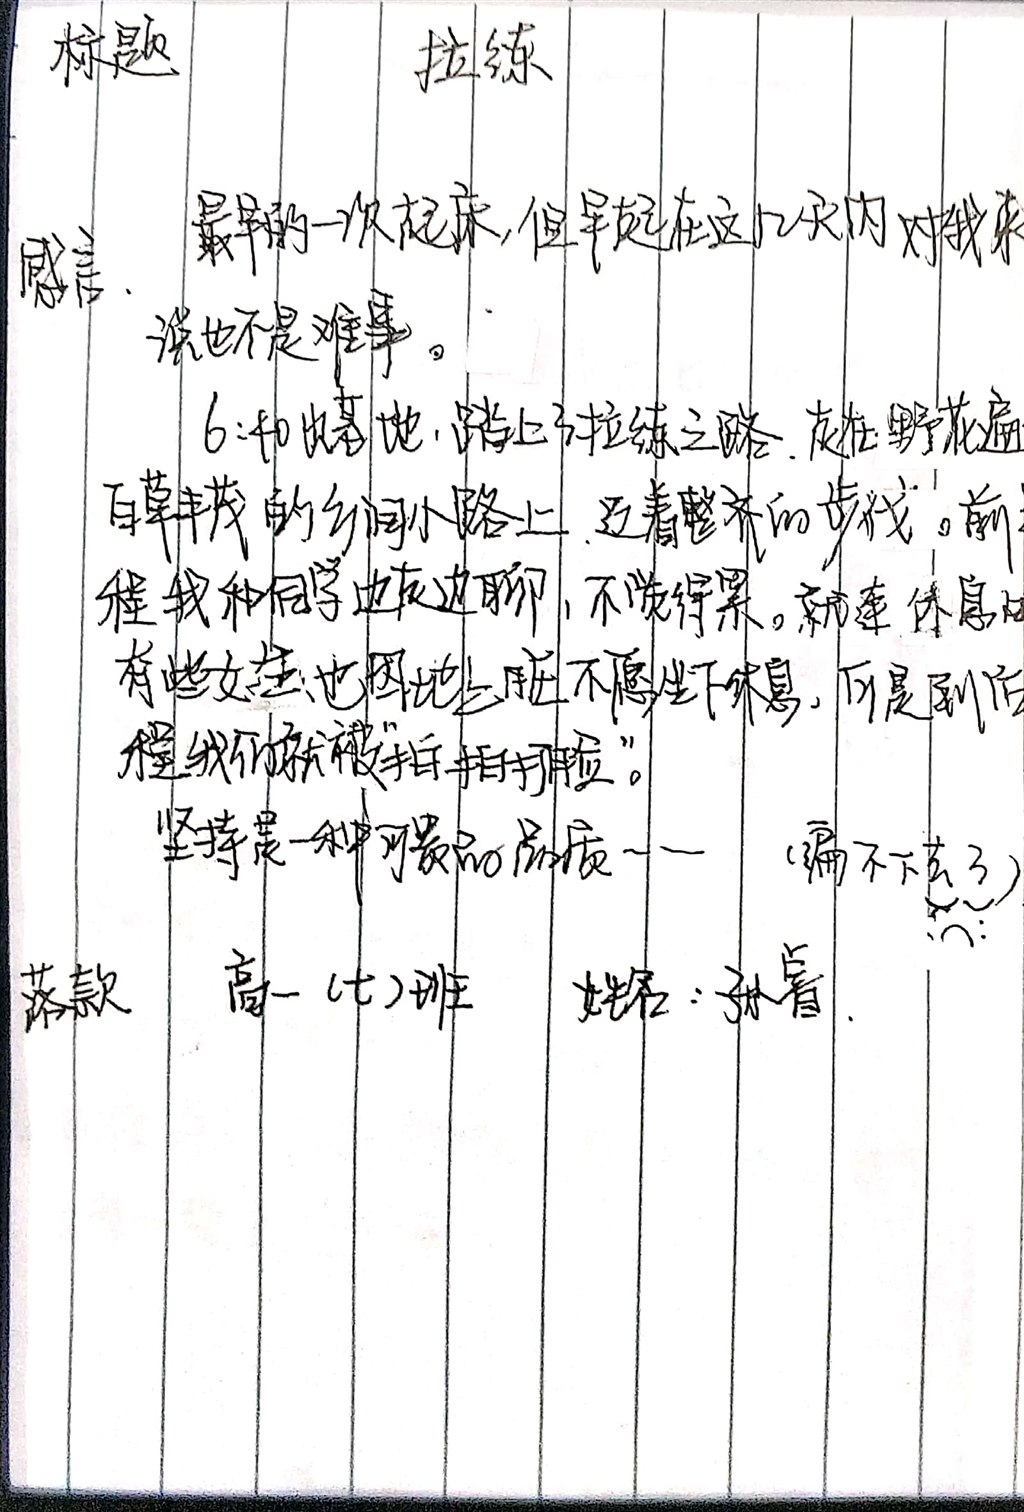 标题 拉练
最早的一次起床,但早起在这几天内对我来
感言.
说也不是难事。
6:40出基地,踏上了拉练之路.走在野花遍
百草丰茂的乡间小路上,迈着整齐的步伐。前
程我和同学边走边聊,不觉得累。就连休息时
有些女生也因地上脏不愿坐下休息,可是到后
程我们就被"啪啪打脸"。
坚持是一种可贵的品质——(编不下去了)
落款 高一(七)班 姓名:孙睿.